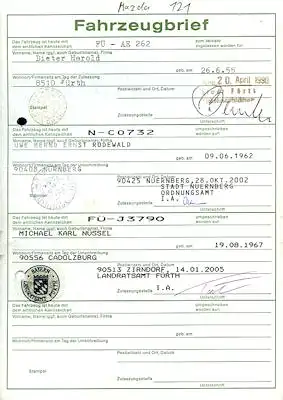 Mazda 121
Fahrzeugbrief
Das Fahrzeug ist heute mit dem amtlichen Kennzeichen
FÜ - AR 262
zugelassen worden für:
Vorname, Name (ggf. auch Geburtsname), Firma
Dieter Herold
geb. am
26.6.55
Wohnort/Firmensitz am Tag der Zulassung
8510 Fürth
Postleitzahl und Ort, Datum
20. April 1990
Fürth
Stempel
Das Fahrzeug ist heute mit dem amtlichen Kennzeichen
N-C0732
zugelassen worden für:
Vorname, Name (ggf. auch Geburtsname), Firma
UWE BERND ERNST RÖDEWALD
geb. am
09.06.1962
Wohnort/Firmensitz am Tag der Umschreibung
90408 NUERNBERG
Postleitzahl und Ort, Datum
90425 NUERNBERG, 28.OKT.2002
STADT NUERNBERG
ORDNUNGSAMT
Zulassungsstelle
I.A.
Das Fahrzeug ist heute mit dem amtlichen Kennzeichen
FÜ-J3790
zugelassen worden für:
Vorname, Name (ggf. auch Geburtsname), Firma
MICHAEL KARL NÜSSEL
geb. am
19.08.1967
Wohnort/Firmensitz am Tag der Umschreibung
90556 CADOLZBURG
Postleitzahl und Ort, Datum
90513 ZIRNDORF, 14.01.2005
LANDRATSAMT FÜRTH
BAYERN
Zulassungsstelle
I.A.
Das Fahrzeug ist heute mit dem amtlichen Kennzeichen
zugelassen worden für:
Vorname, Name (ggf. auch Geburtsname), Firma
geb. am
Wohnort/Firmensitz am Tag der Umschreibung
Postleitzahl und Ort, Datum
Stempel
Zulassungsstelle